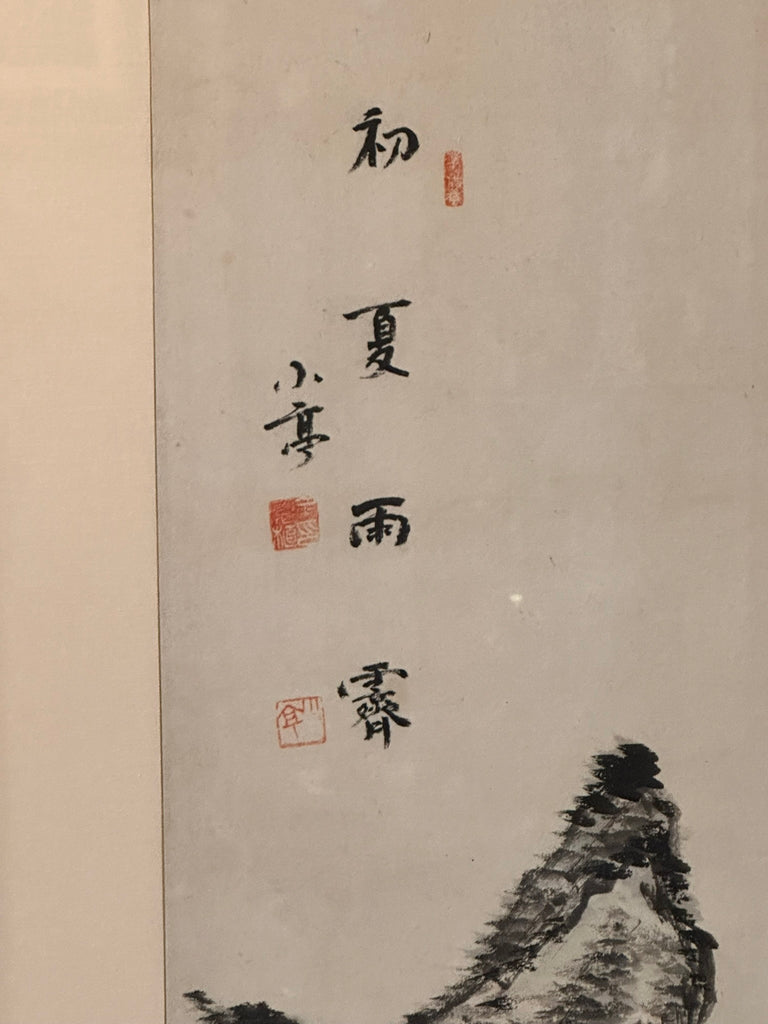 初夏雨霽
小亭